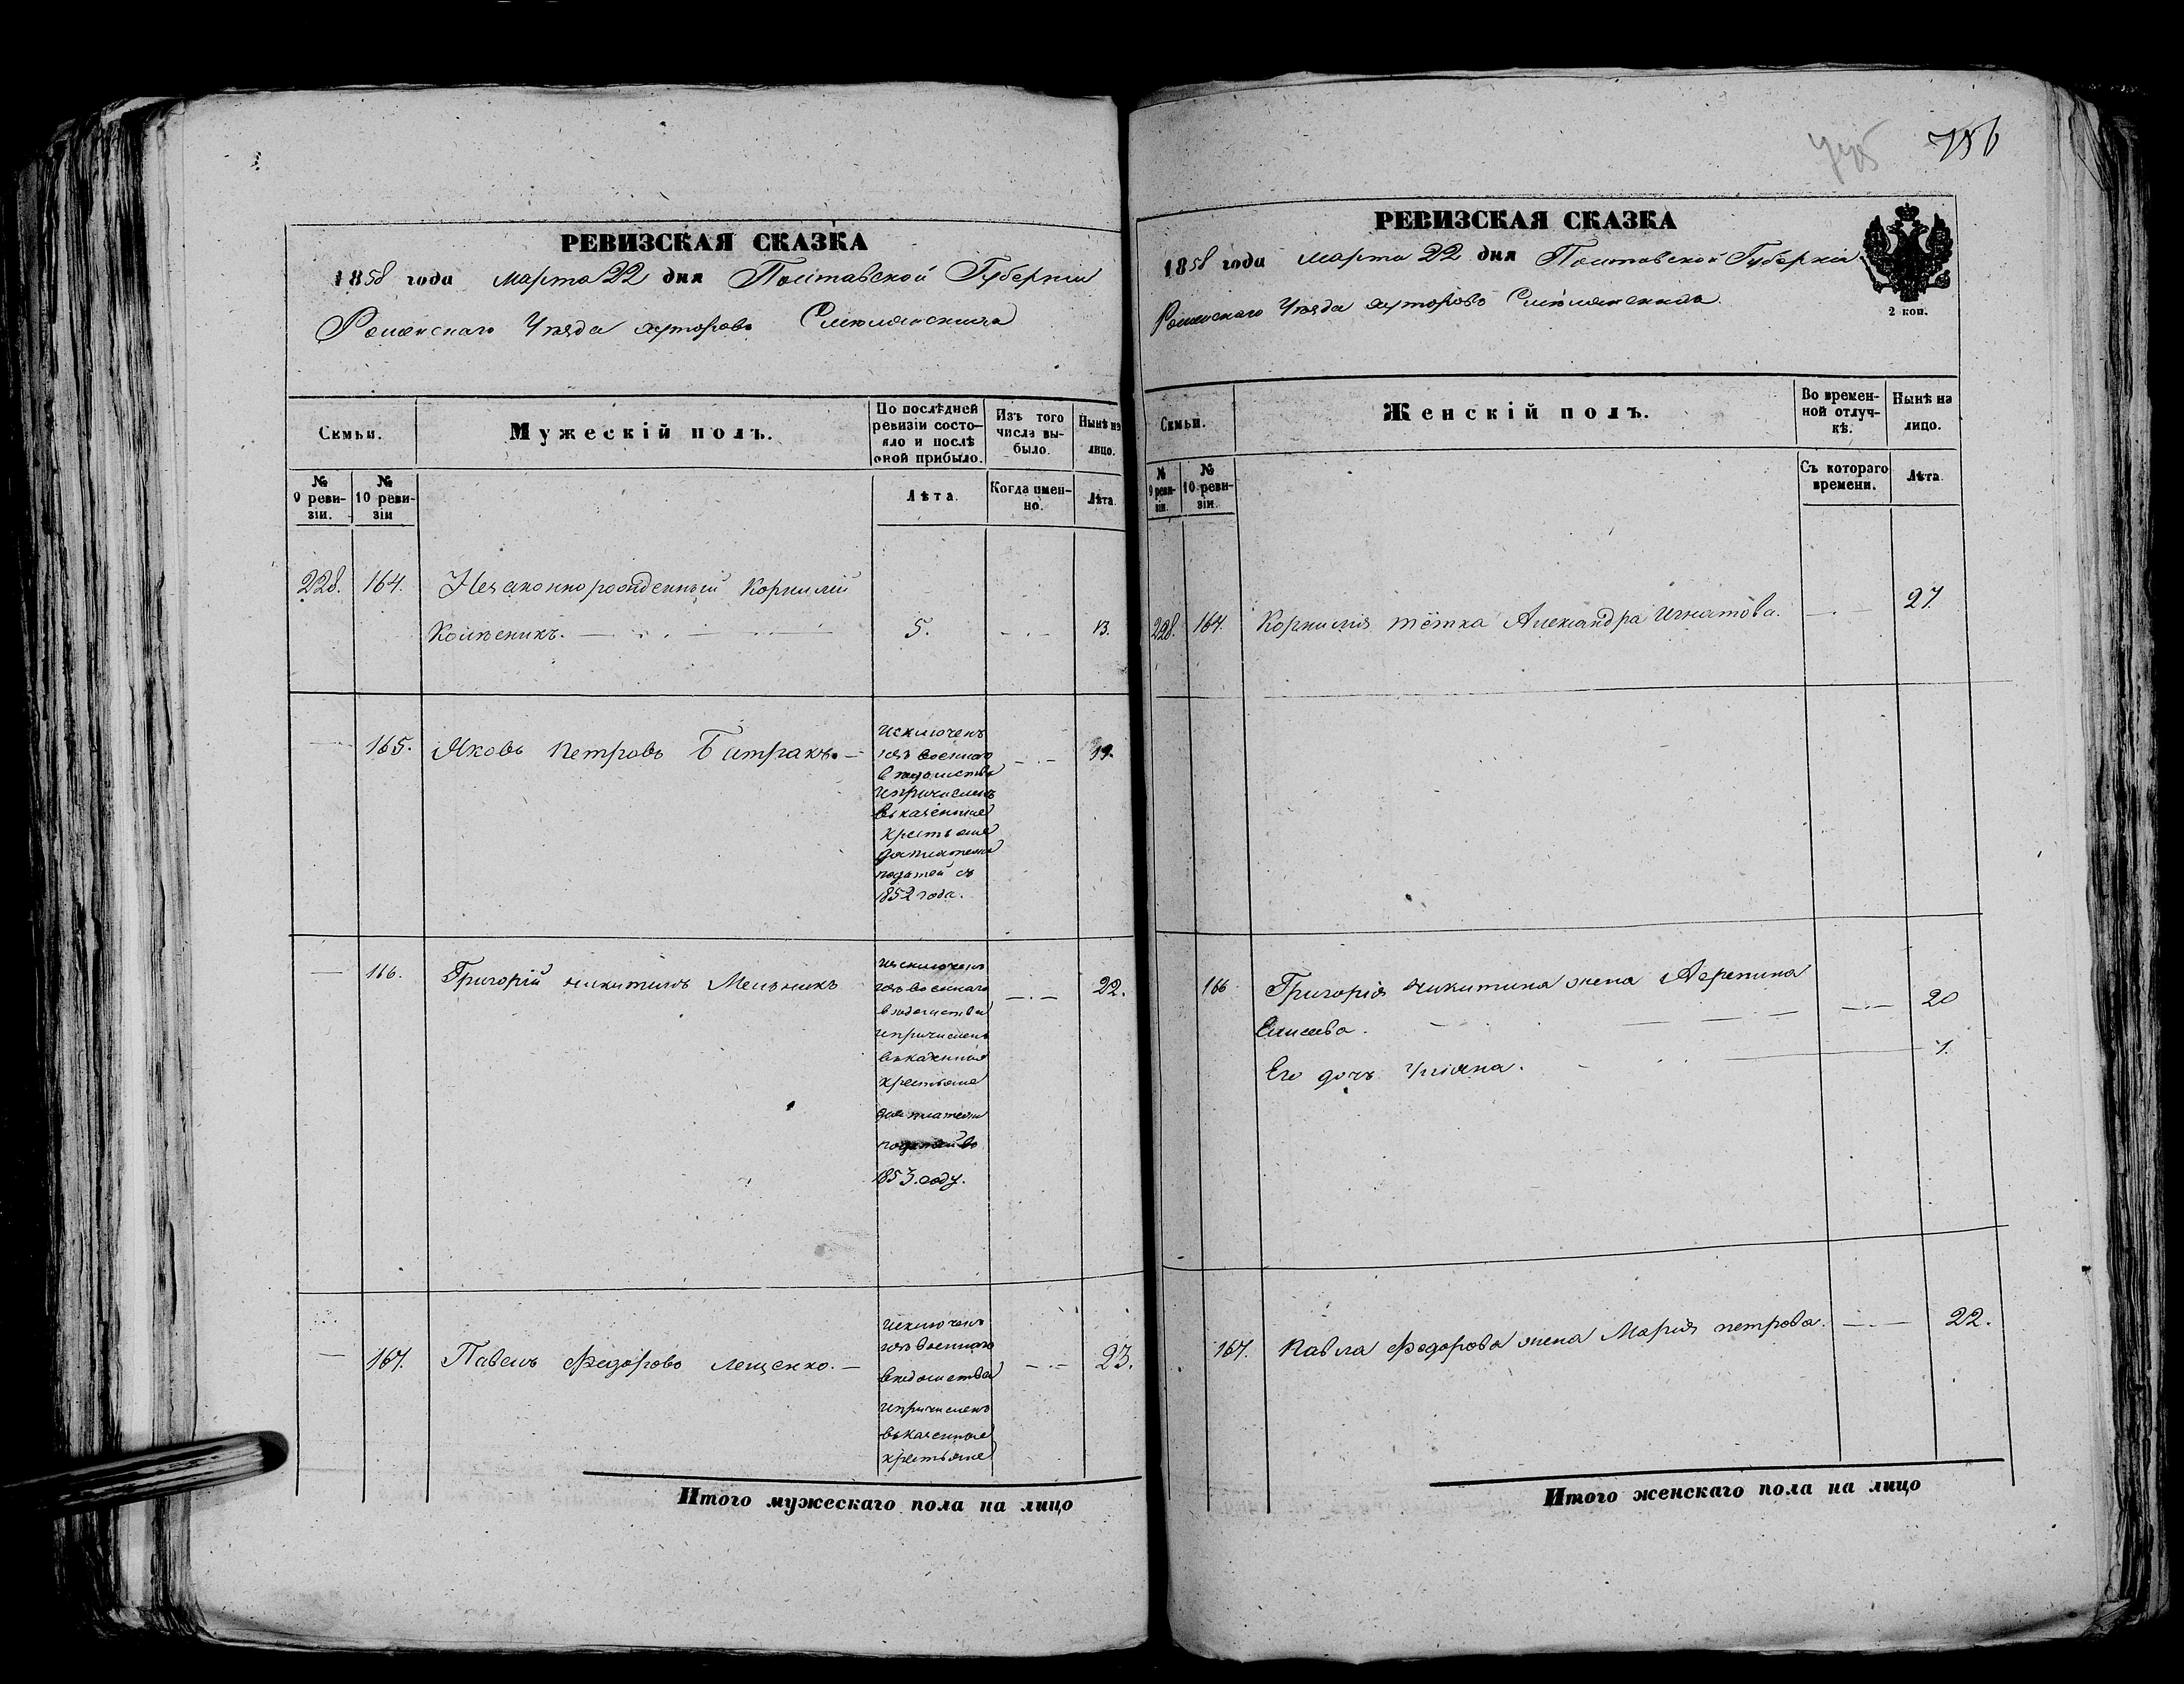 756
РЕВИЗСКАЯ СКАЗКА
1858 года марта 22 дня Полтавской Губернии
Роменскаго Уѣзда хуторовъ
Семьи.
Мужескій полъ.
По послѣдней ревизіи состояло и послѣ оной прибыло.
Изъ того числа выбыло.
Нынѣ на лицо.
№ 9 ревизіи.
№ 10 ревизіи
Лѣта.
Когда именно.
Лѣта.
228. 164. Незаконнорожденный Корнилій
Колѣсникъ. 5. 13.
165. Яковъ Петровъ Батракъ. 19.
исключенъ
изъ военнаго
вѣдомства
и причисленъ
въ казенные
крестьяне
для платежа
податей съ
1852 года.
166. Григорій Никитинъ Мельникъ 22.
исключенъ
изъ военнаго
вѣдомства
и причисленъ
въ казенные
крестьяне
для платежа
податей въ
1853 году.
167. Павелъ Федоровъ Лещенко. 23.
исключенъ
изъ военнаго
вѣдомства
и причисленъ
въ казенные
крестьяне
Итого мужескаго пола на лицо
РЕВИЗСКАЯ СКАЗКА
1858 года марта 22 дня Полтавской Губерніи
Роменскаго Уѣзда хуторовъ
2 коп.
Семьи.
Женскій полъ.
Во временной отлучкѣ.
Нынѣ на лицо.
№ 9 ревизіи.
№ 10 ревизіи.
Съ котораго времени.
Лѣта.
228. 164. Корнилія тётка Александра Игнатова. 27.
166 Григорія Никитина жена Агрепина
Елисеева. 20
Его дочь Уліяна. 1.
167. Павла Федорова жена Марія Петрова. 22.
Итого женскаго пола на лицо